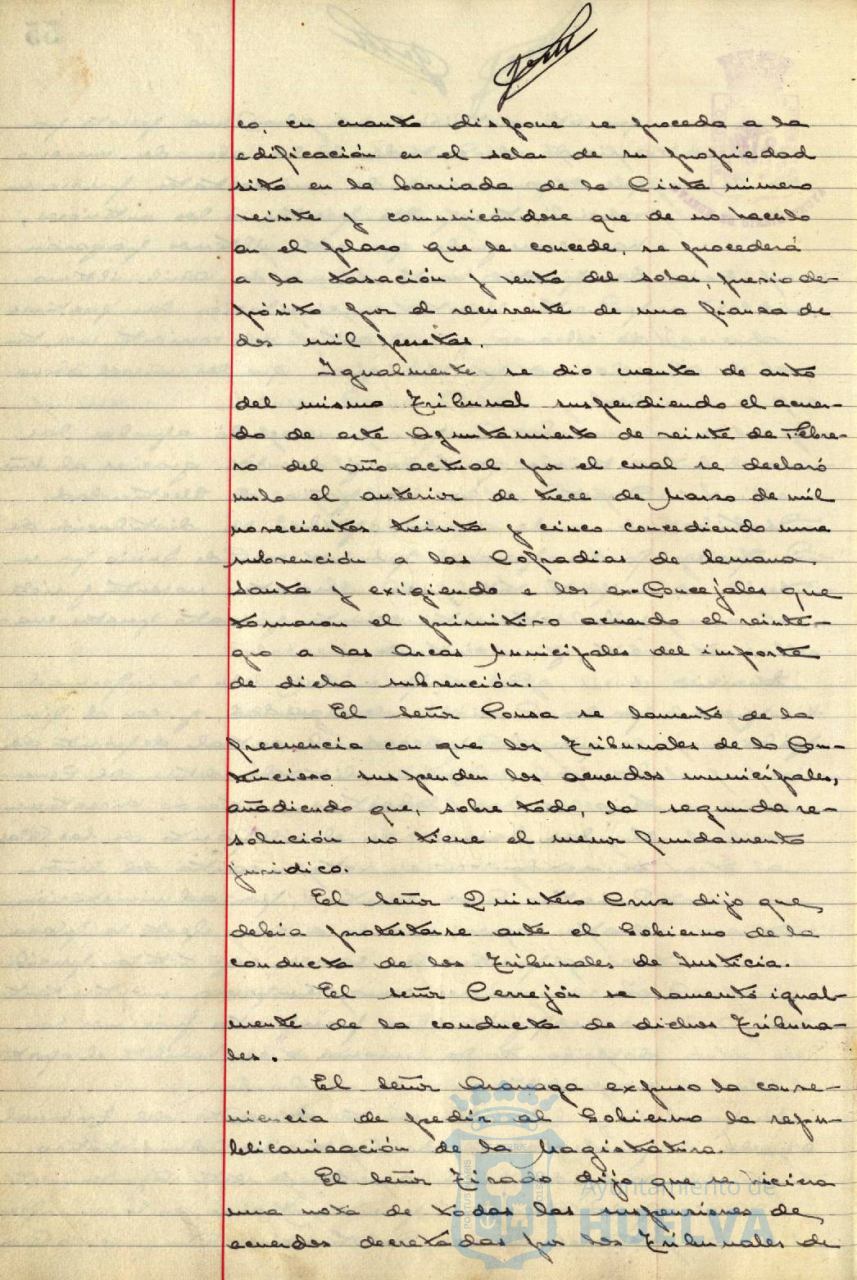 co, en cuanto dispone se proceda a la
edificación en el solar de su propiedad
sito en la barriada de la Cinta número
veinte y comunicándose que de no hacerlo
en el plazo que le concede, se procederá
a la tasación y venta del solar, previo de-
pósito por el recurrente de una fianza de
dos mil pesetas.
Igualmente se dio cuenta de auto
del mismo Tribunal suspendiendo el acuer-
do de este Ayuntamiento de veinte de Febre-
ro del año actual por el cual se declaró
nulo el anterior de trece de Marzo de mil
novecientos treinta y cinco concediendo una
subvención a las Cofradias de Semana
Santa y exigiendo a los ex-Concejales que
tomaron el primitivo acuerdo el reinte-
gro a las Arcas Municipales del importe
de dicha subvención.
El señor Ponsa se lamentó de la
frecuencia con que los Tribunales de lo Con-
tencioso suspenden los acuerdos municipales,
añadiendo que, sobre todo, la segunda re-
solución no tiene el menor fundamento
juridico.
El señor Quintero Cruz dijo que
debia protestarse ante el Gobierno de la
conducta de los Tribunales de Justicia.
El señor Cerrejón se lamentó igual-
mente de la conducta de dichos Tribuna-
les.
El señor Aranaga expuso la conve-
niencia de pedir al Gobierno la repu-
blicanización de la Magistratura.
El señor Tirado dijo que se hiciera
una nota de todas las suspensiones de
acuerdos decretadas por los Tribunales de
Ayuntamiento de
HUELVA